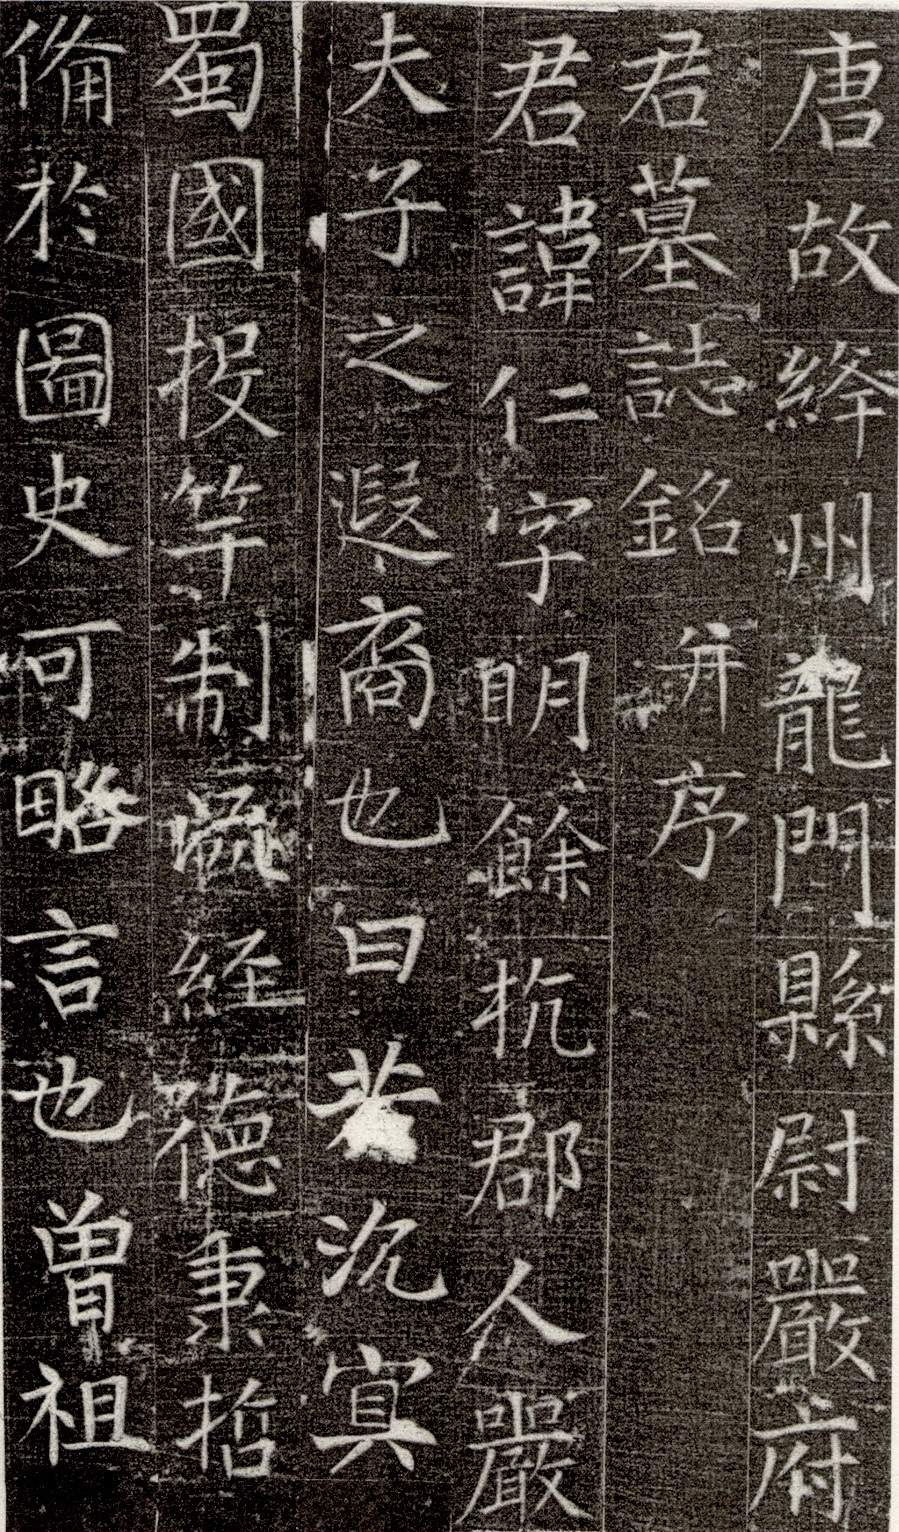 唐故絳州龍門縣尉嚴府
君墓誌銘并序
君諱仁字明餘杭郡人嚴
夫子之遐裔也曰若沉冥
蜀國投竿制經德秉哲
備於圖史可略言也曾祖